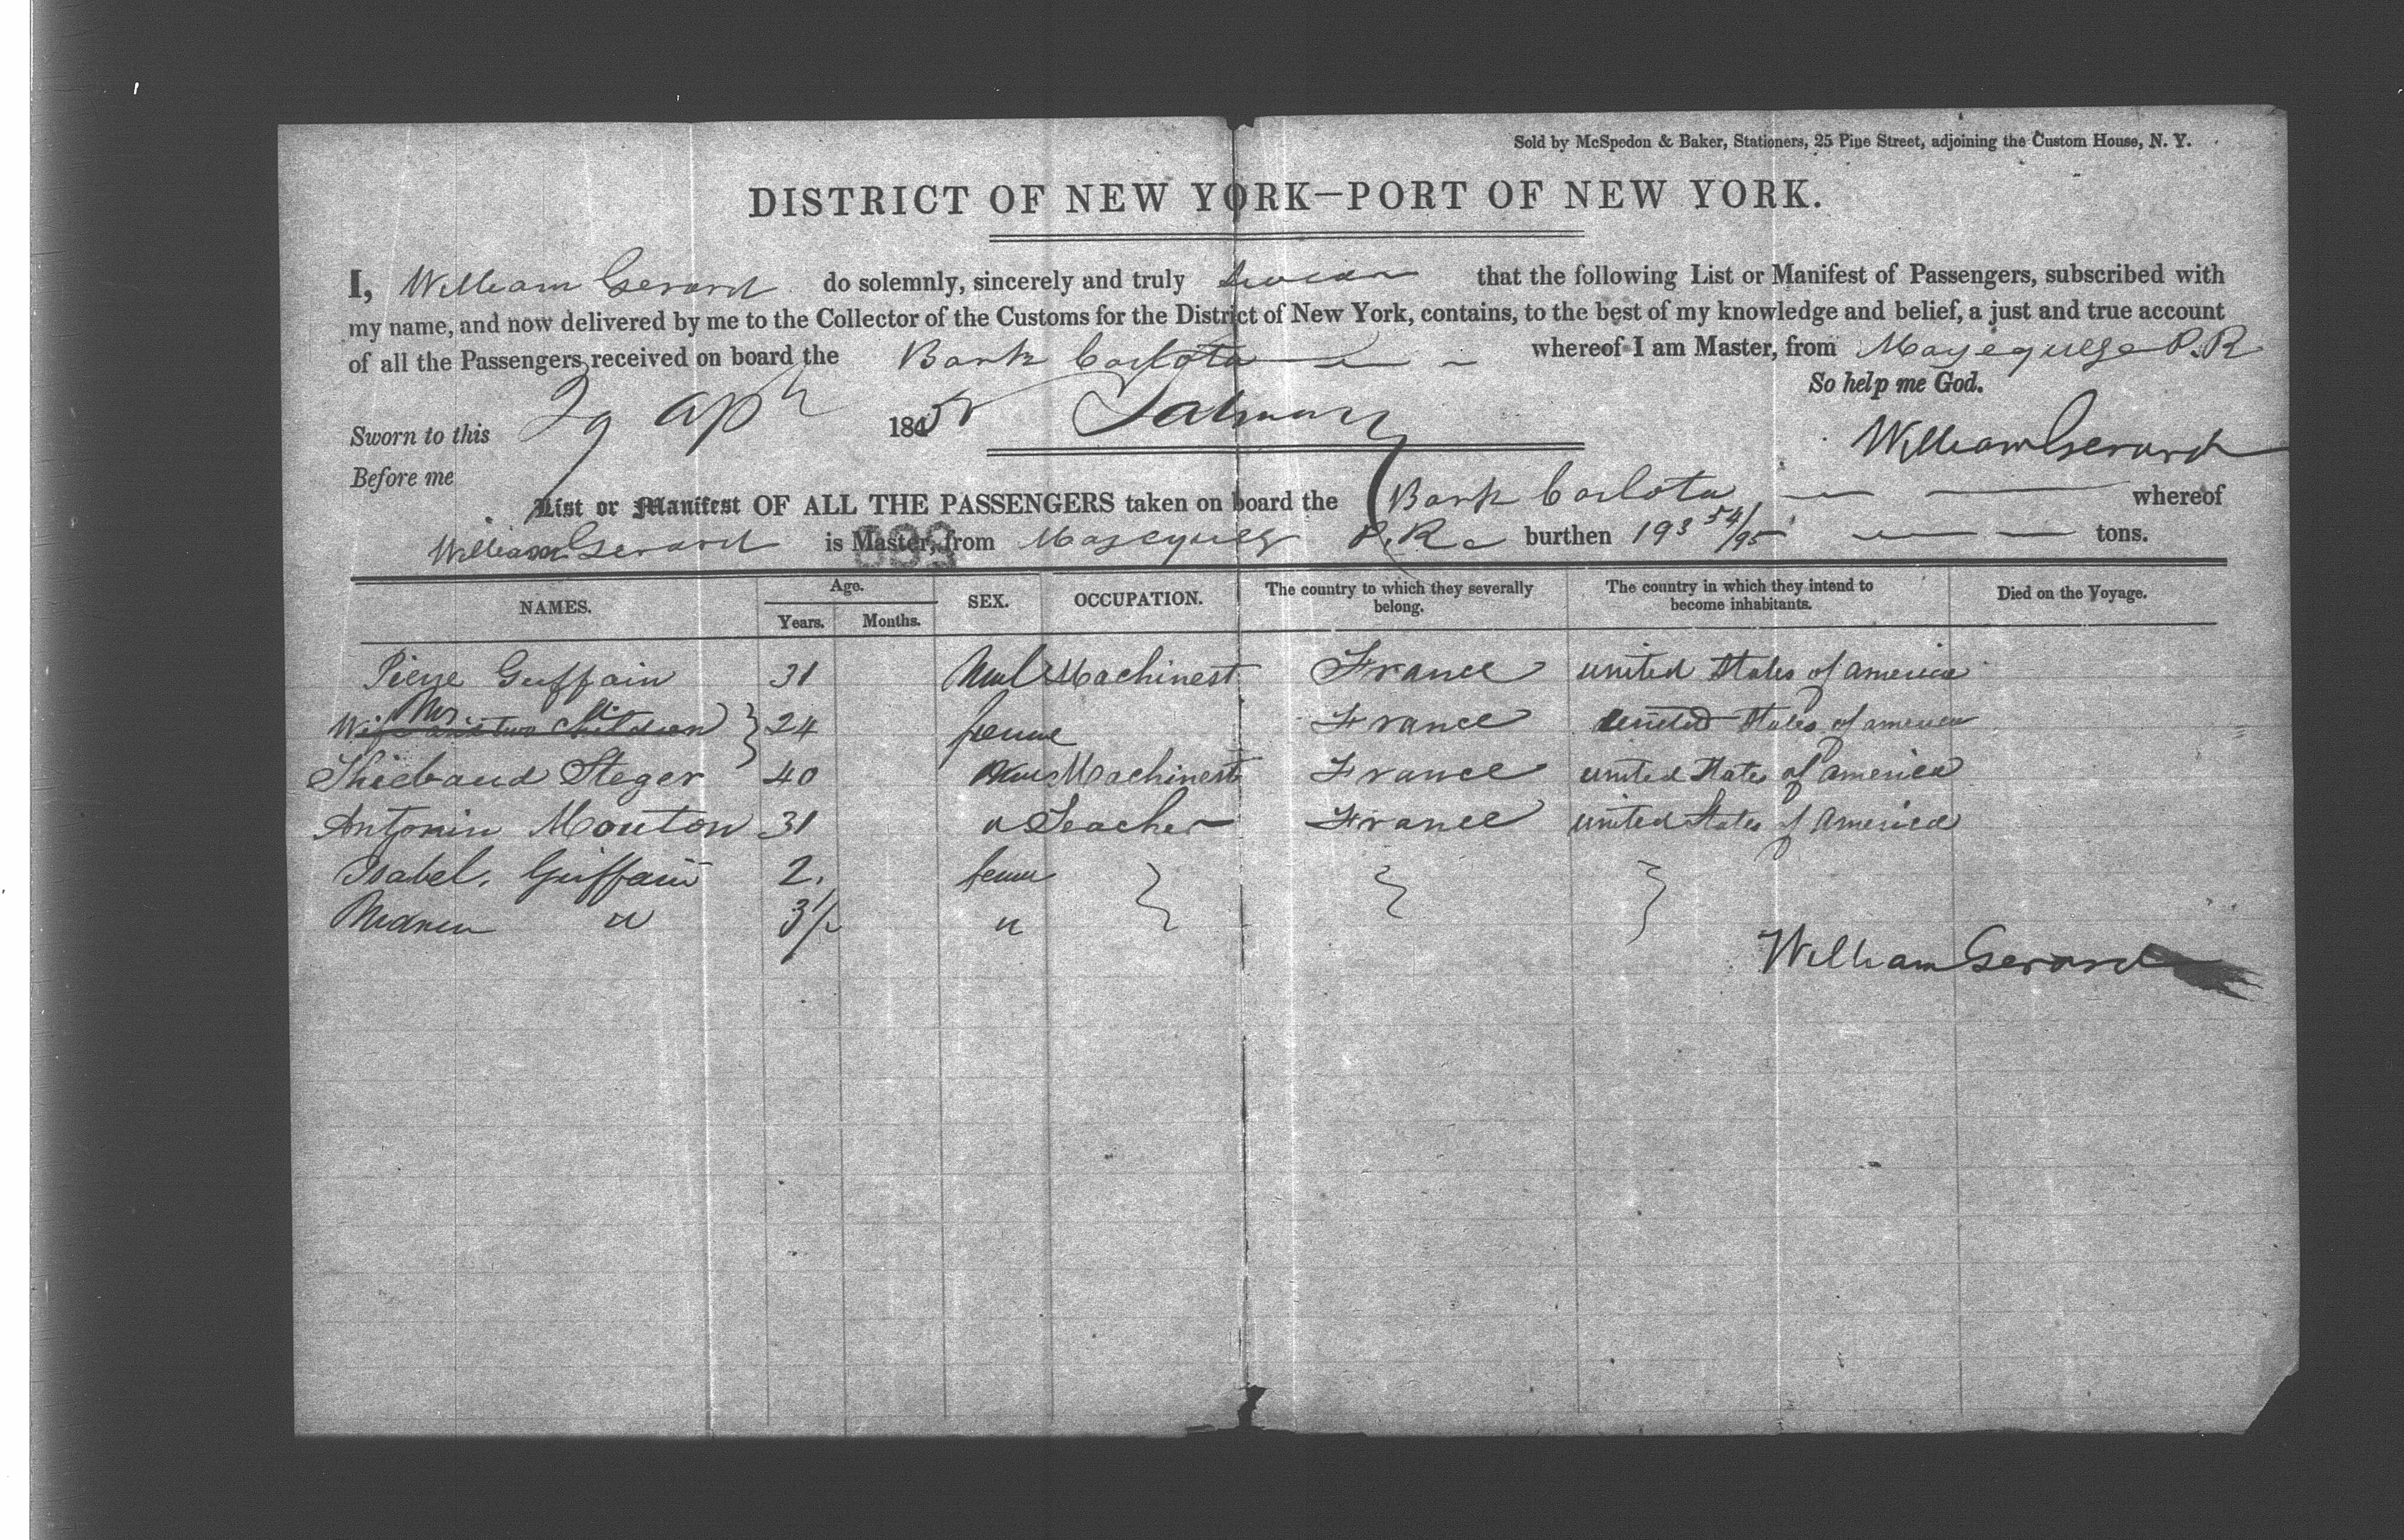 Sold by McSpedon & Baker, Stationers, 25 Pine Street, adjoining the Custom House, N. Y.
DISTRICT OF NEW YORK—PORT OF NEW YORK.
I, William Gerard do solemnly, sincerely and truly swear that the following List or Manifest of Passengers, subscribed with
my name, and now delivered by me to the Collector of the Customs for the District of New York, contains, to the best of my knowledge and belief, a just and true account
of all the Passengers received on board the Bark Carlota whereof I am Master, from P. R
So help me God.
Sworn to this 29 Apl 185
William Gerard
Before me
List or Manifest OF ALL THE PASSENGERS taken on board the Bark Carlota whereof
William Gerard is Master, from P. R burthen 193 54/95 tons.
NAMES. Age. SEX. OCCUPATION. The country to which they severally belong. The country in which they intend to become inhabitants. Died on the Voyage.
Years. Months.
Guffain 31 Machinest France united States of america
Mrs. Wife and two Children 24 France united States of america
Thiebaud Steger 40 Machinest France united States of America
Antonin Mouton 31 " Teacher France united States of America
Isabel. Guffain 2.
" 3/ "
William Gerard